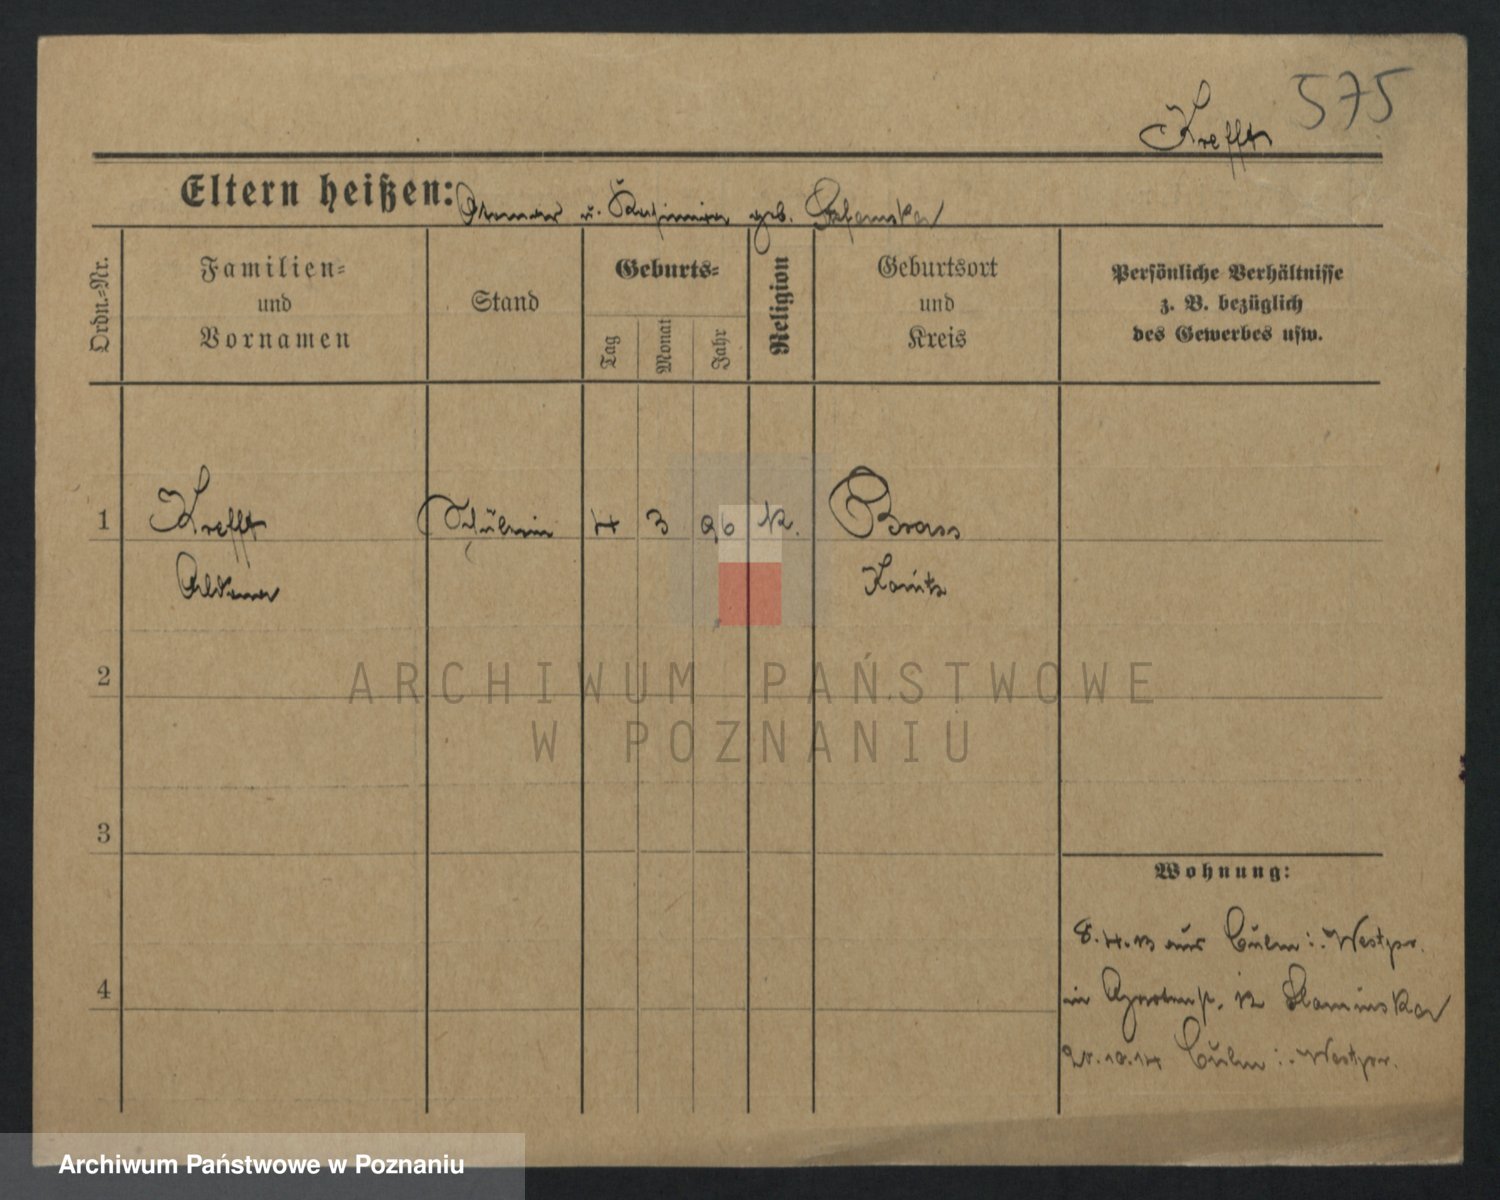 575
Krefft
Eltern heißen: u. Kasimira geb.
Ordn.-Nr.
Familien-
und
Vornamen
Stand
Geburts-
Tag
Monat
Jahr
Religion
Geburtsort
und
Kreis
Persönliche Verhältnisse
z. B. bezüglich
des Gewerbes usw.
1 Krefft Schülerin 4 3 96 K. Bruss
Konitz
2
ARCHIWUM PAŃSTWOWE
W POZNANIU
3
Wohnung:
8.4.13 aus Culm i. Westpr.
4
in 12 Slaminska
10.14 Culm i. Westpr.
Archiwum Państwowe w Poznaniu